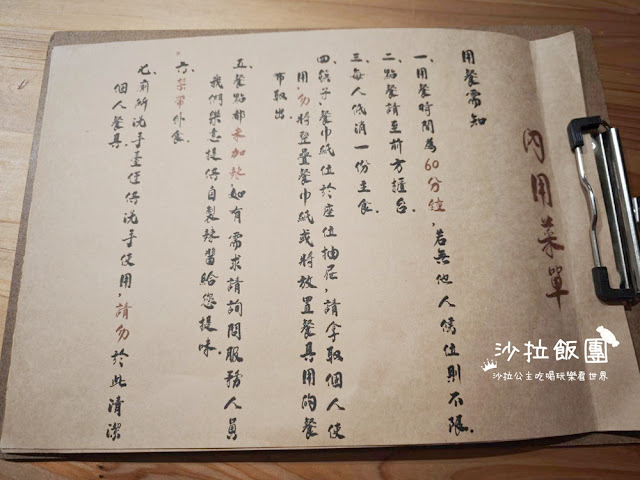 內用菜單
用餐需知
一、用餐時間為60分鐘,若無他人候位則不限。
二、點餐請至前方櫃台。
三、每人低消一份主食。
四、筷子、餐巾紙位於座位抽屜,請拿取個人使
用,勿將整疊餐巾紙或將放置餐具用的餐
布取出。
五、餐點都未加辣,如有需求請詢問服務人員
我們樂意提供自製辣醬給您提味。
六、禁帶外食。
七、廁所洗手臺僅供洗手使用,請勿於此清潔
個人餐具。
沙拉飯團
沙拉公主吃喝玩樂看世界